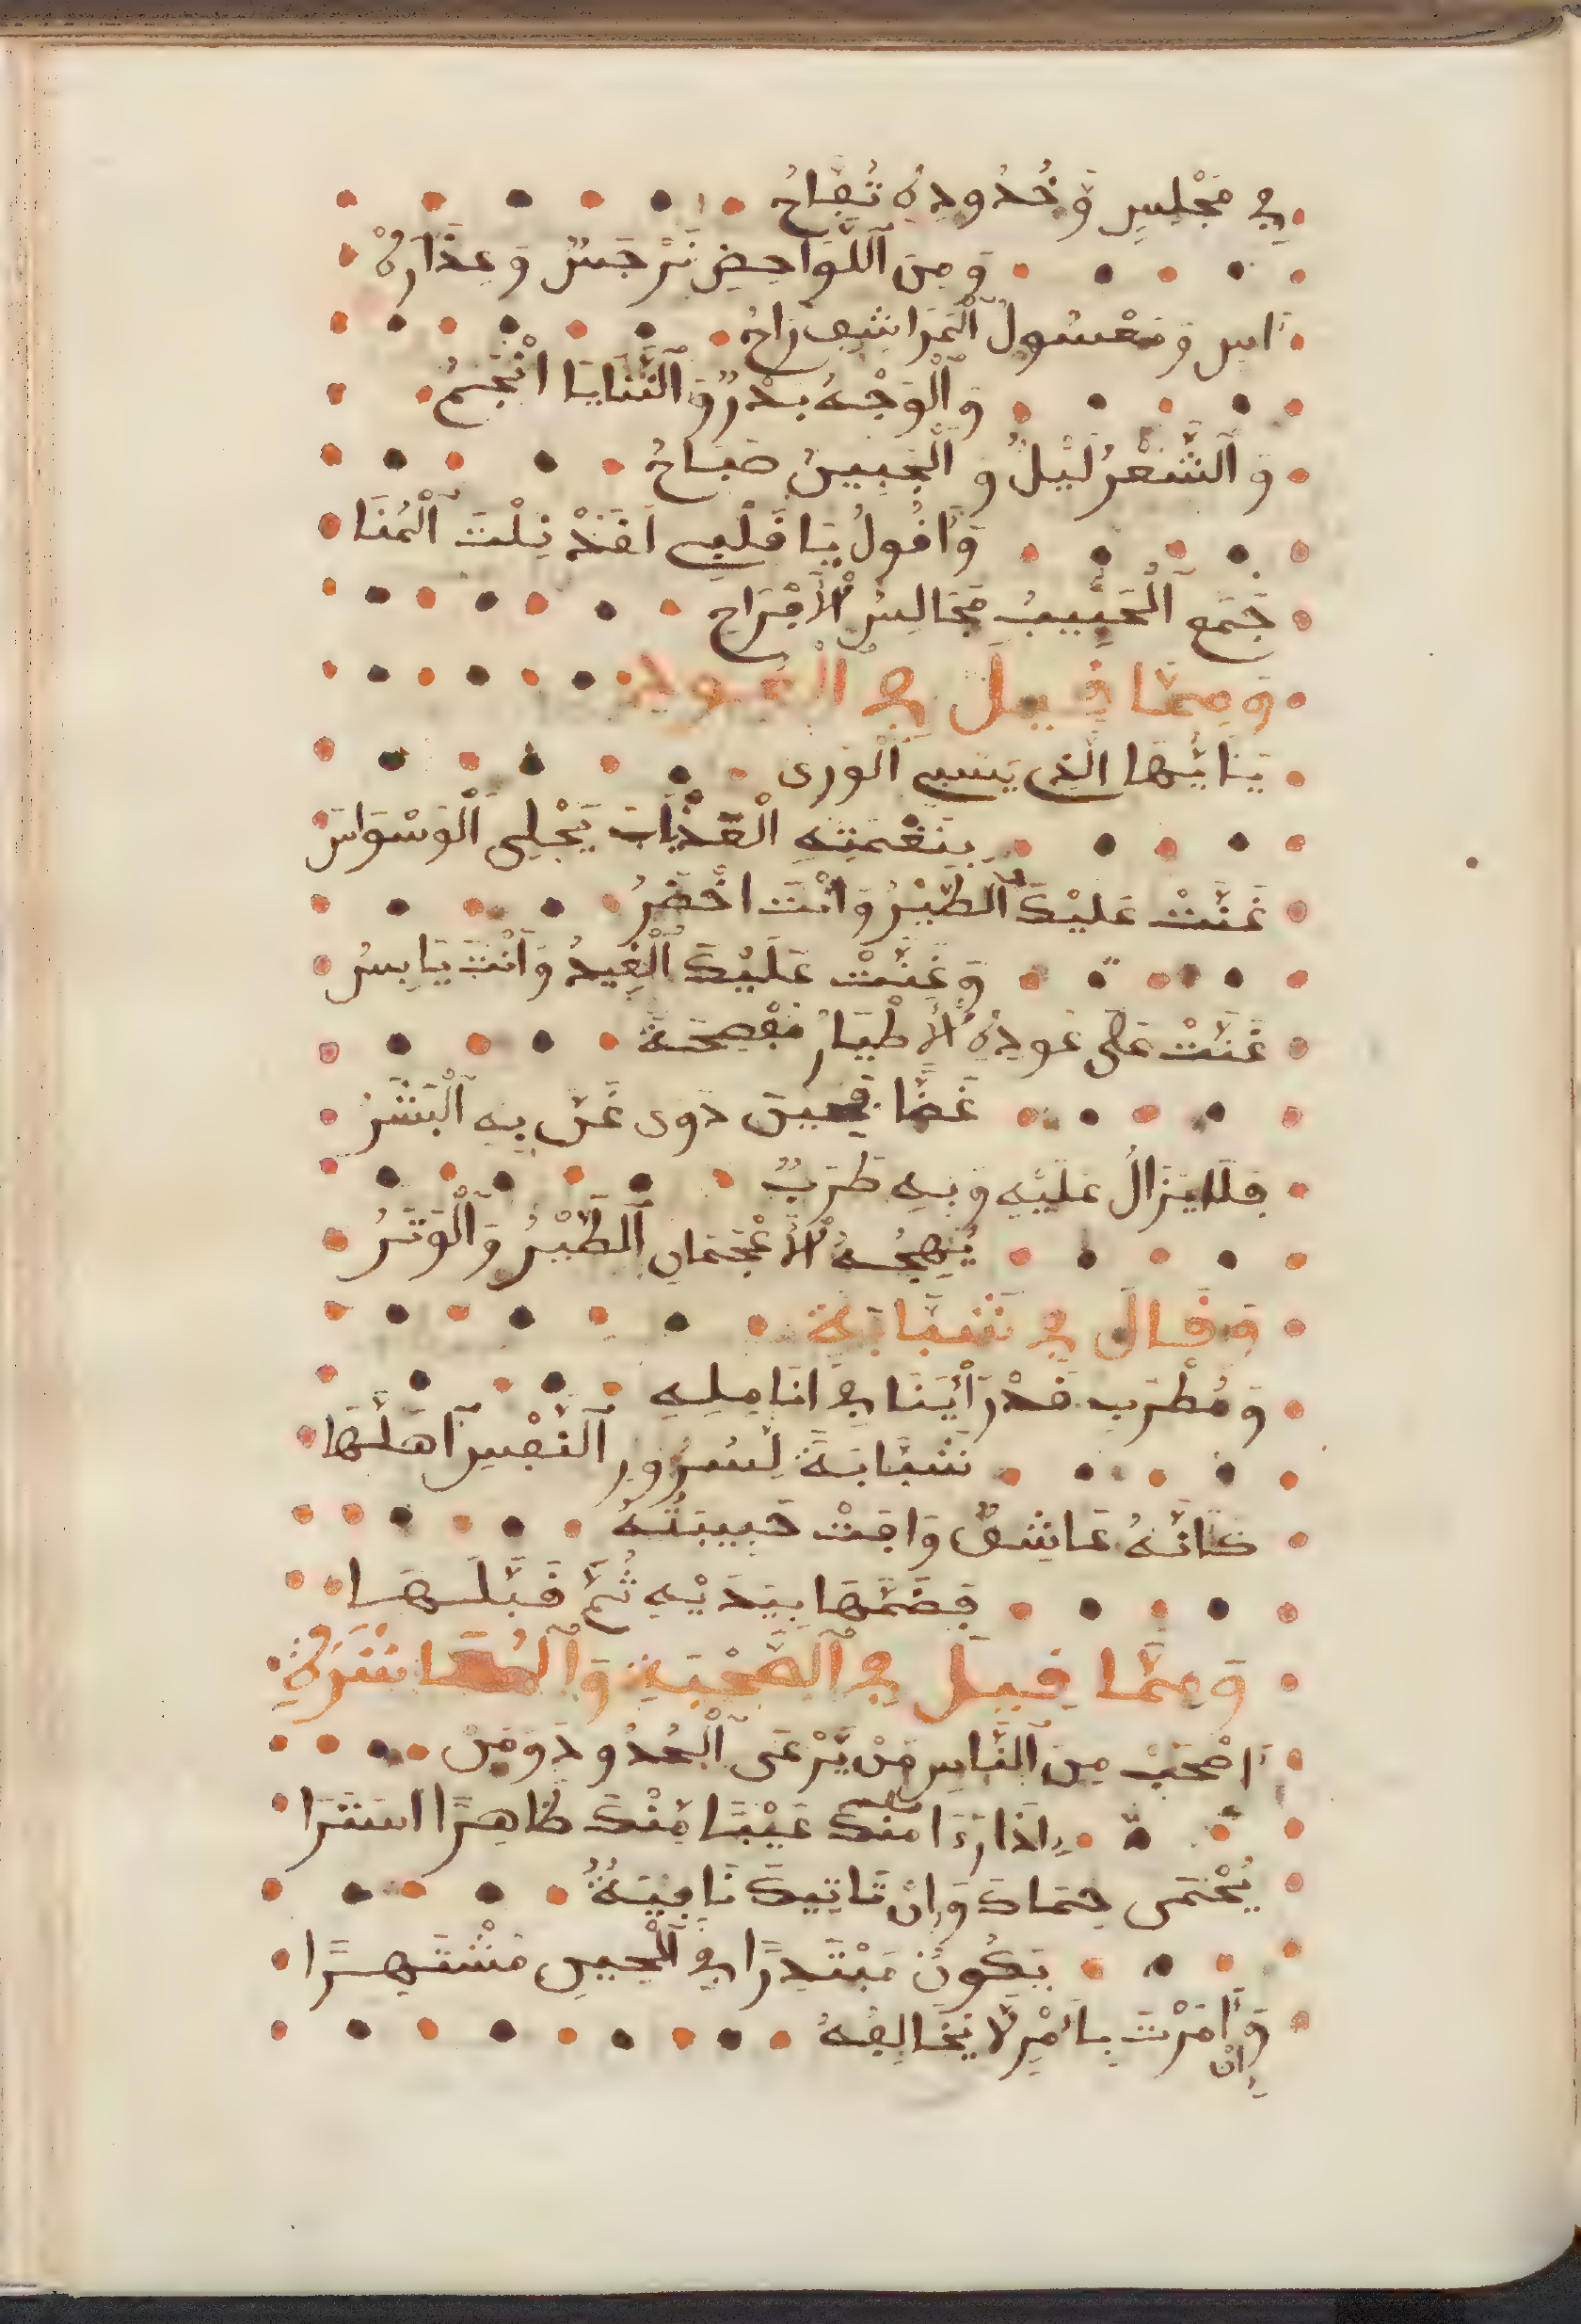 في مَجْلِسٍ وَخُدُودِهِ تُفَّاحُ
وَمِنَ ٱللَّوَاحِضِ نَرْجَسٌ وَعِذَارُهُ
ءَاسٍ وَمَعْسُولُ ٱلْمَرَاشِفِ رَاحُ
وَٱلْوَجْهُ بَدْرٌ وَٱلثَّنَايَا انْجُمُ
وَٱلشَّعْرُ لَيْلٌ وٱلْجَبِينُ صَبَاحُ
وَأَقُولُ يَا قَلْبِي لَقَدْ نِلْتَ ٱلْمُنَا
جَمَعَ ٱلْحَبِيبُ مَجَالِسُ ٱلْأَفْرَاحِ
وَمِمَّا قِيلَ فِي ٱلْعُودِ
يَنَايُّهَا الَّذِي يَسْبِي ٱلْوَرى
بِنَغْمَتِهِ الْعَذْبَاتَ يَجْلِي ٱلْوَسْوَاسَ
غَنَّتْ عَلَيْكَ ٱلطَّيْرُ وَانْتَ اخْضَرُ
وَغَنَّتْ عَلَيْكَ ٱلْغِيدُ وَأَنْتَ يَابِسُ
غَنَّتْ عَلَى عُودِهِ ٱلْأَطْيَارُ مُفْصِحَة
غَضًّا فَحِينَ ذَوى غَنَّى بِهِ ٱلْبَشَرُ
فَلَا يَزَالُ عَلَيْهِ وَبِهِ طَرَبٌ
يُهِيجُهُ ٱلْأَعْجَمَانِ ٱلطَّيْرُ وَٱلْوَتَرُ
وَقَالَ فِي شَبَّابَةٍ
وَمُطْرَبٍ قَدْ رَأَيْنَا فِي أَنَامِلِهِ
شَبَّابَةً لِسُرُورِ ٱلنَّفْسِ آهَلَّهَا
كَأَنَّهُ عَاشِقٌ وَافَتْ حَبِيبَتُهُ
فَضَمَّهَا بِيَدَيْهِ ثُمَّ قَبَّلَهَا
وَمِمَّا قِيلَ فِي ٱلصُّحْبَةِ وَٱلْمُعَاشَرَةِ
اَصْحَبْ مِنَ ٱلنَّاسِ مَنْ يَّرْعَى ٱلْحُدُودَ وَمَنْ
إِذَا رَءَا مِنْكَ عَيْبًا مِنْكَ ظَاهِرًا اسَتَرَا
يُحْتَمَى حِمَاكَ وَإِنْ تَاتِيكَ نَافِيَةٌ
يَكُونُ مَبْتَدِرًا فِي ٱلْحِينِ مَشْتَهِرًا
وَإِنْ أَمَرْتَ بِأَمْرٍ لَا يُخَالِفُهُ